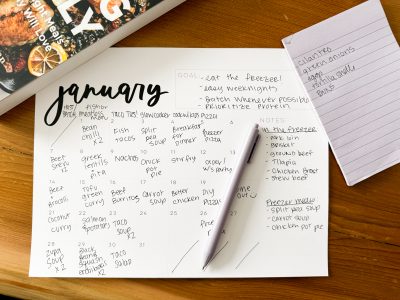 y Will Love
january
GOAL
- eat the freezer!
- easy weeknights
- Batch whenever possible
- Prioritize protein
Bean
chili
x2
Fish
tacos
split
pea
soup
Breakfast
for
dinner
freezer
pizza
Beef
green
lentils
pita
Nachos
Chick
pot
pie
stirfry
Beef
Tofu
green
curry
Beef
Burritos
Carrot
Soup
Butter
chicken
DIY
Pizza!
Coconut
curry
Salmon
potatoes
Taco
Soup
x2
Zupa
Soup
x2
Black
Bean,
Squash
enchiladas
x2
Taco
Salad
NOTES
in the freezer
- pork loin
- Brisket
- ground beef
- Tilapia
- chicken Breast
- stew beef
Freezer meals
- split pea soup
- carrot soup
- chicken pot pie
cilantro
green onions
tortilla shells